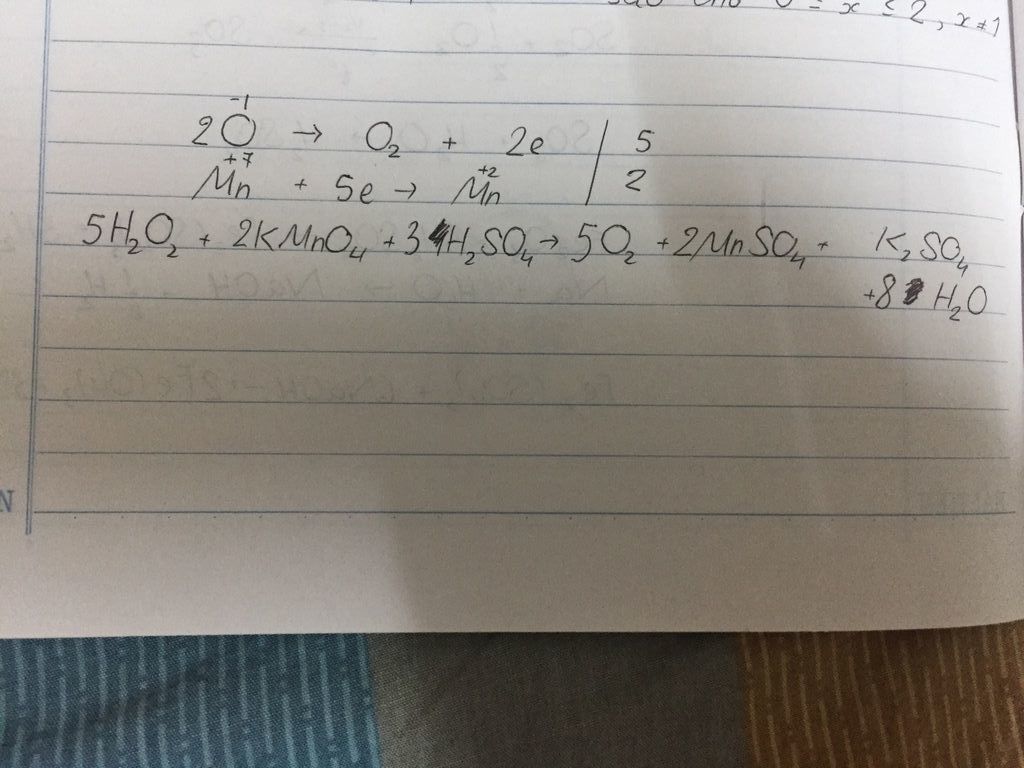 0 ≤ x ≤ 2, x ≠ 1
2O⁻¹ → O₂ + 2e | 5
Mn⁺⁷ + 5e → Mn⁺² | 2
5H₂O₂ + 2KMnO₄ + 3H₂SO₄ → 5O₂ + 2MnSO₄ + K₂SO₄
+8H₂O
N